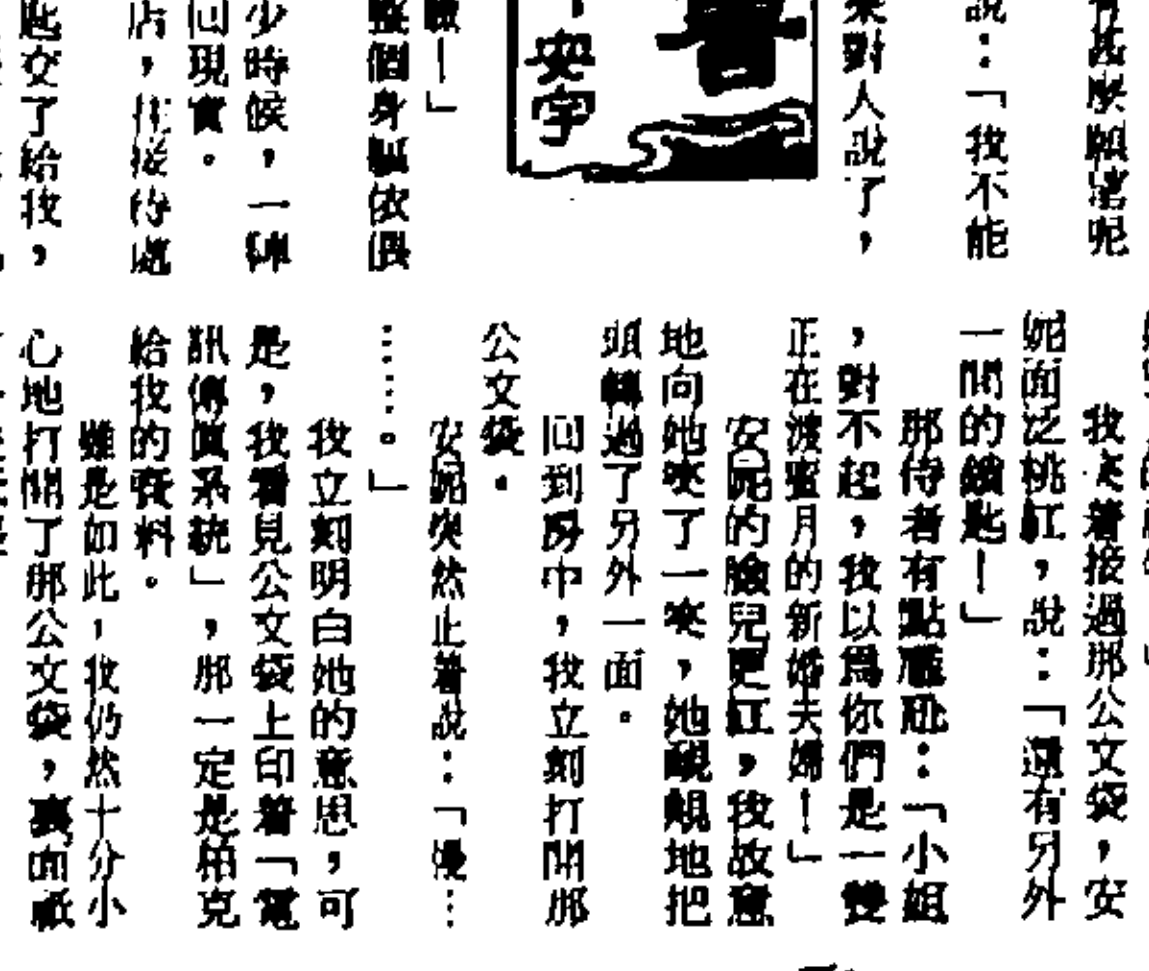 有甚麽願望呢
說：「我不能
來對人說了，
書
·安宇
驗！」
整個身軀依偎
少時候，一陣
回現實。
店，在接待處
匙交了給我，
我笑着接過那公文袋，安
妮面泛桃紅，說：「還有另外
一間的鎖匙！」
那侍者有點尷尬：「小姐
，對不起，我以爲你們是一雙
正在渡蜜月的新婚夫婦！」
安妮的臉兒更紅，我故意
地向她笑了一笑，她靦覥地把
頭轉過了另外一面。
回到房中，我立刻打開那
公文袋。
安妮突然止着說：「慢…
……。」
我立刻明白她的意思，可
是，我看見公文袋上印着「電
訊傳眞系統」，那一定是柏克
給我的資料。
雖是如此，我仍然十分小
心地打開了那公文袋，裏面祇